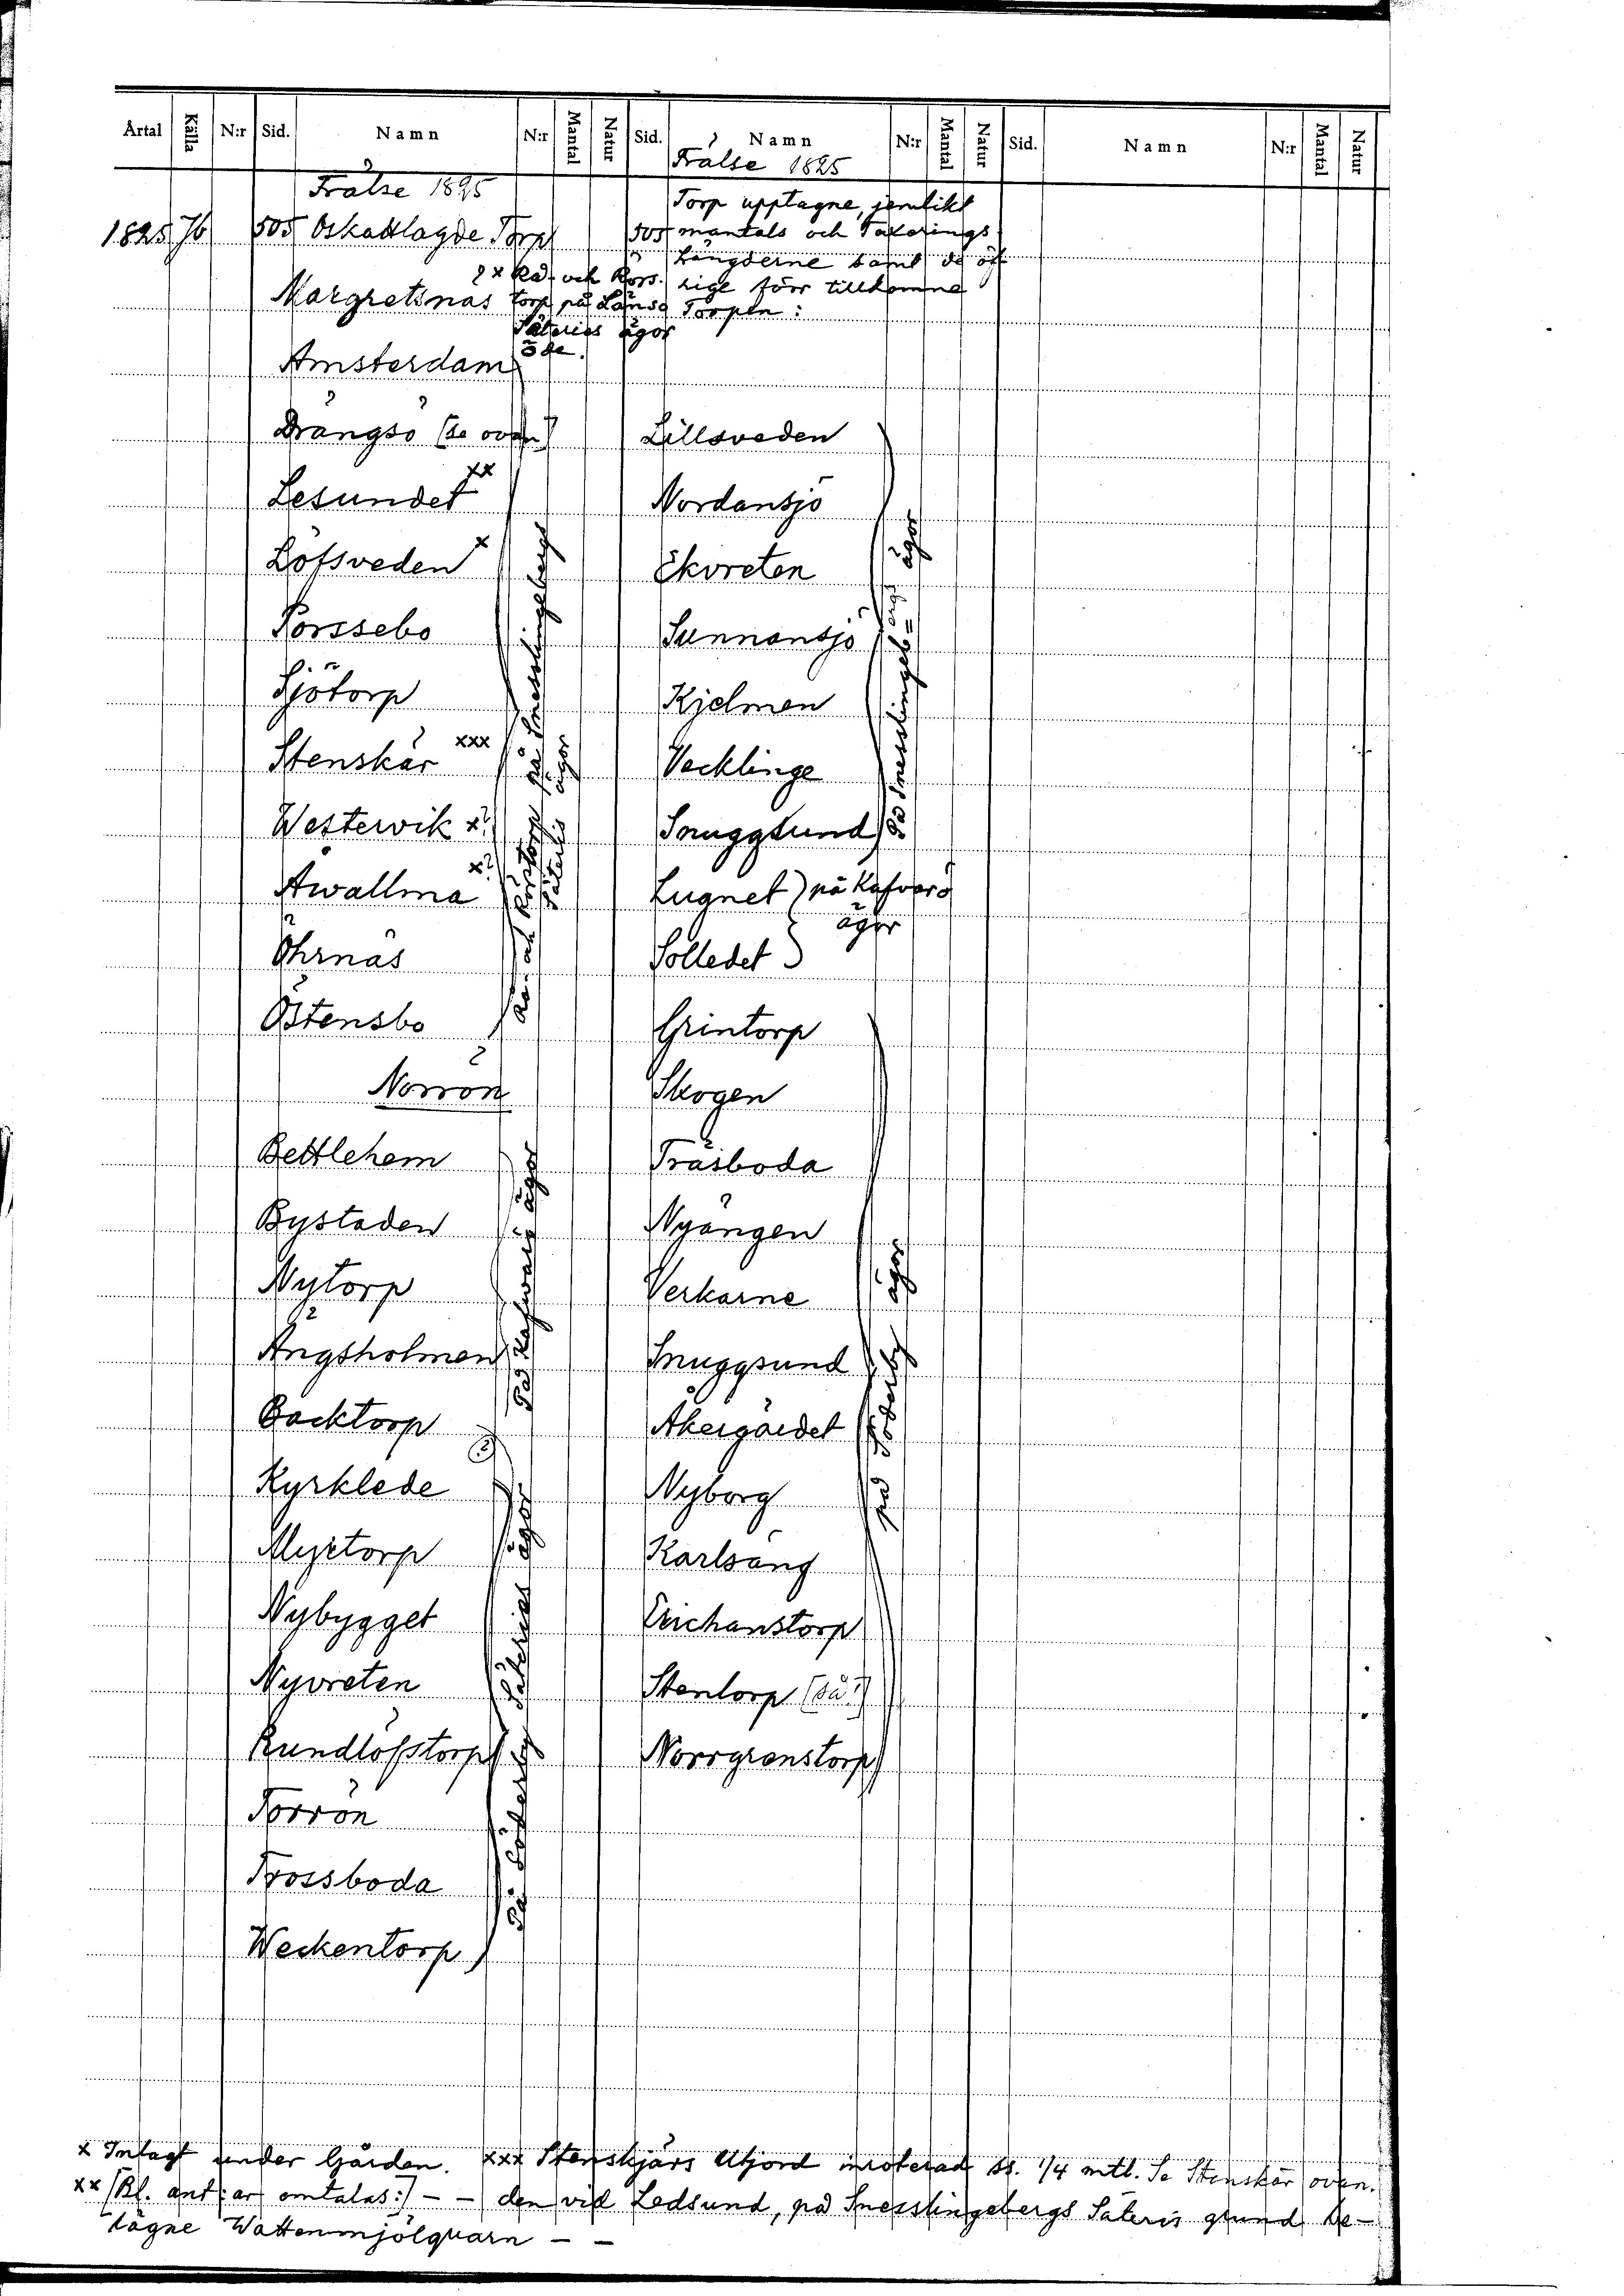 Årtal Källa N:r Sid. Namn N:r Mantal Natur Sid. Namn N:r Mantal Natur Sid. Namn N:r Mantal Natur
Frälse 1825
1825 Jb 505 Oskattlagde Torp
Margretsnäs
torp på Länsö
Säteries ägor
öde.
Amsterdam
Drängsö (se ovan)
Lesundet xx
Löfsveden x
Porssebo
Sjötorp
Stenskär xxx
Westervik x?
Awallma x?
Öhrnäs
Östensbo
på Snesslingebergs
Säteries ägor
Norrön
Bettlehem
Bystaden
Nytorp
Ängsholmen
På Kafwarö ägor
Backtorp
Kyrklede
Myrtorp
Nybygget
Nyvreten
Rundlöfstorp
Torrön
Trossboda
Weckentorp
På Söderby Säteries ägor
Frälse 1825
505 Torp upptagne, jemlikt
mantals och Taxerings
Längderne samt de öf
rige förr tillkomne
Torpen:
Lillsveden
Nordansjö
Ekvreten
Sunnansjö
Kjelmen
Vecklinge
Snuggsund
på Snesslingeb=ergs ägor
Lugnet på Kafvarö
ägor
Solledet
Grintorp
Skogen
Träsboda
Nyängen
Verkarne
Snuggsund
Åkergärdet
Nyborg
Karlsäng
Erichanstorp
Stentorp (så!)
Norrgrenstorp
på Söderby ägor
x Intagt under Gården. xxx Stenskjärs Utjord inroterad ss. 1/4 mtl. Se Stenskär ovan.
xx (Bl. ant:ar omtalas:) - - den vid Ledsund, på Snesslingebergs Säteris grund be-
lägne Wattenmjölquarn - -